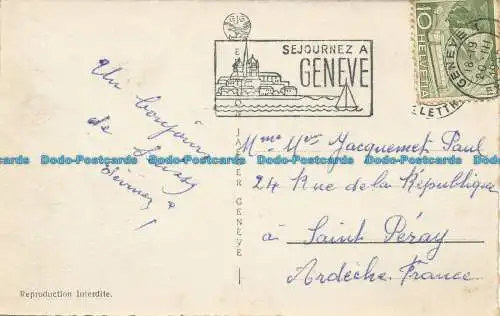 SEJOURNEZ A
GENEVE
10
HELVETIA
GENEVE
Un bonjour
de
Mme Mrs Jacquemet Paul
24 Rue de la République
à Saint Péray
Ardèche. France.
JAEGER GENEVE
Reproduction Interdite.
Dodo-Postcards Dodo-Postcards Dodo-Postcards Dodo-Postcards
Dodo-Postcards Dodo-Postcards Dodo-Postcards Dodo-Postcards